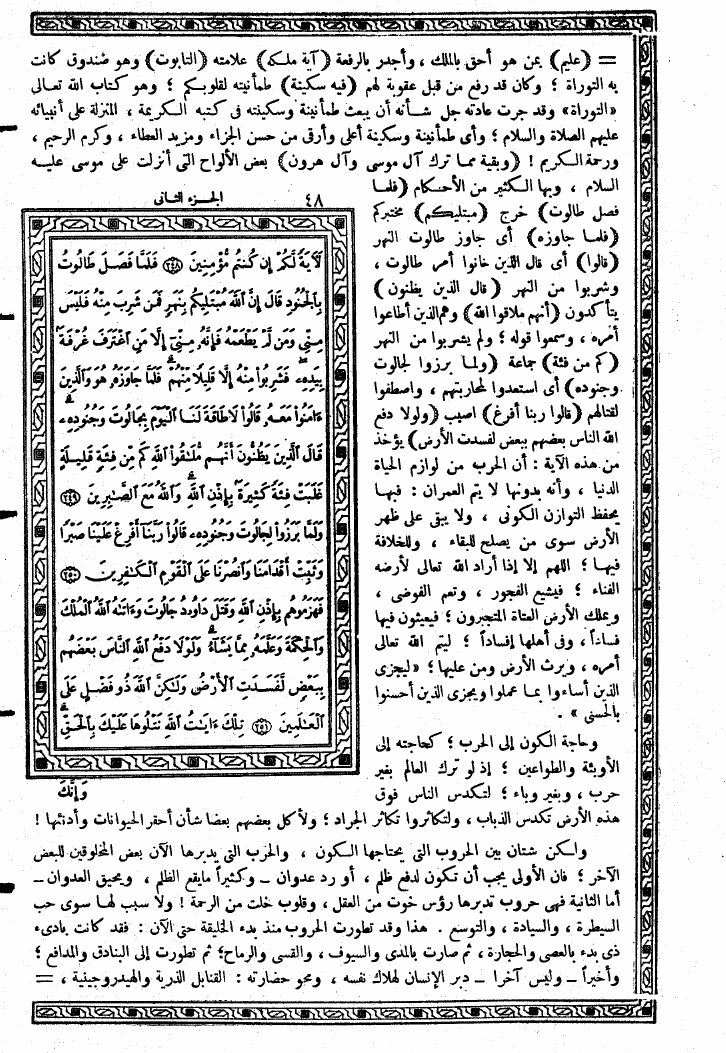 = (عليم) بمن هو أحق بالملك، وأجدر بالرفعة (آية ملكه) علامته (التابوت) وهو صندوق كانت
به التوراة؛ وكان قد رفع من قبل عقوبة لهم (فيه سكينة) طمأنينة لقلوبكم؛ وهو كتاب الله تعالى
«التوراة» وقد جرت عادته جل شأنه أن يبعث طمأنينة وسكينته فى كتبه الكريمة، المنزلة على أنبيائه
عليهم الصلاة والسلام؛ وأى طمأنينة وسكينة أعلى وأرقى من حسن الجزاء ومزيد العطاء، وكرم الرحيم،
ورحمة الكريم! (وبقية مما ترك آل موسى وآل هرون) بعض الألواح التى أنزلت على موسى عليه
السلام، وبها الكثير من الأحكام (فلما
فصل طالوت) خرج (مبتليكم) مختبركم
(فلما جاوزه) أى جاوز طالوت النهر
(قالوا) أى قال الذين خانوا أمر طالوت،
وشربوا من النهر (قال الذين يظنون)
يتأكدون (أنهم ملاقوا الله) وهم الذين أطاعوا
أمره، وسمعوا قوله؛ ولم يشربوا من النهر
(كم من فئة) جماعة (ولما برزوا لجالوت
وجنوده) أى استعدوا لمحاربتهم، واصطفوا
لقتالهم (قالوا ربنا أفرغ) اصبب (ولولا دفع
الله الناس بعضهم ببعض لفسدت الأرض) يؤخذ
من هذه الآية: أن الحرب من لوازم الحياة
الدنيا، وأنه بدونها لا يتم العمران: فبها
يحفظ التوازن الكونى، ولا يبقى على ظهر
الأرض سوى من يصلح للبقاء، وللخلافة
فيها؛ اللهم إلا إذا أراد الله تعالى لأرضه
الفناء؛ فيشيع الفجور، وتعم الفوضى،
ويملك الأرض العتاة المتجبرون؛ فيعيثون فيها
فساداً، وفى أهلها إفساداً؛ ليتم الله تعالى
أمره، ويرث الأرض ومن عليها؛ «ليجزى
الذين أساءوا بما عملوا ويجزى الذين أحسنوا
بالحسنى».
وحاجة الكون إلى الحرب؛ كحاجته إلى
الأوبئة والطواعين؛ إذ لو ترك العالم بغير
حرب، وبغير وباء؛ لتكدس الناس فوق
٤٨ الجزء الثانى
لَآيَةً لَّكُمْ إِن كُنتُم مُّؤْمِنِينَ ﴿٢٤٨﴾ فَلَمَّا فَصَلَ طَالُوتُ
بِالْجُنُودِ قَالَ إِنَّ اللَّهَ مُبْتَلِيكُم بِنَهَرٍ فَمَن شَرِبَ مِنْهُ فَلَيْسَ
مِنِّي وَمَن لَّمْ يَطْعَمْهُ فَإِنَّهُ مِنِّي إِلَّا مَنِ اغْتَرَفَ غُرْفَةً
بِيَدِهِ فَشَرِبُوا مِنْهُ إِلَّا قَلِيلًا مِّنْهُمْ فَلَمَّا جَاوَزَهُ هُوَ وَالَّذِينَ
ءَامَنُوا مَعَهُ قَالُوا لَا طَاقَةَ لَنَا الْيَوْمَ بِجَالُوتَ وَجُنُودِهِ
قَالَ الَّذِينَ يَظُنُّونَ أَنَّهُم مُّلَٰقُوا اللَّهِ كَم مِّن فِئَةٍ قَلِيلَةٍ
غَلَبَتْ فِئَةً كَثِيرَةً بِإِذْنِ اللَّهِ وَاللَّهُ مَعَ الصَّٰبِرِينَ ﴿٢٤٩﴾
وَلَمَّا بَرَزُوا لِجَالُوتَ وَجُنُودِهِ قَالُوا رَبَّنَا أَفْرِغْ عَلَيْنَا صَبْرًا
وَثَبِّتْ أَقْدَامَنَا وَانصُرْنَا عَلَى الْقَوْمِ الْكَٰفِرِينَ ﴿٢٥٠﴾
فَهَزَمُوهُم بِإِذْنِ اللَّهِ وَقَتَلَ دَاوُدُ جَالُوتَ وَءَاتَىٰهُ اللَّهُ الْمُلْكَ
وَالْحِكْمَةَ وَعَلَّمَهُ مِمَّا يَشَاءُ وَلَوْلَا دَفْعُ اللَّهِ النَّاسَ بَعْضَهُم
بِبَعْضٍ لَّفَسَدَتِ الْأَرْضُ وَلَٰكِنَّ اللَّهَ ذُو فَضْلٍ عَلَى
الْعَٰلَمِينَ ﴿٢٥١﴾ تِلْكَ ءَايَٰتُ اللَّهِ نَتْلُوهَا عَلَيْكَ بِالْحَقِّ
وَإِنَّكَ
هذه الأرض تكدس الذباب، ولتكاثروا تكاثر الجراد؛ ولأكل بعضهم بعضا شأن أحقر الحيوانات وأدنئها!
ولكن شتان بين الحروب التى يحتاجها الكون، والحرب التى يدبرها الآن بعض المخلوقين للبعض
الآخر؛ فان الأولى يجب أن تكون لدفع ظلم، أو رد عدوان ــ وكثيراً مايقع الظلم، ويحيق العدوان ــ
أما الثانية فهى حروب تدبرها رؤس خوت من العقل، وقلوب خلت من الرحمة! ولا سبب لها سوى حب
السيطرة، والسيادة، والتوسع. هذا وقد تطورت الحروب منذ بدء الخليقة حتى الآن: فقد كانت بادىء
ذى بدء بالعصى والحجارة، ثم صارت بالمدى والسيوف، والقسى والرماح؛ ثم تطورت إلى البنادق والمدافع؛
وأخيراً ــ وليس آخرا ــ دبر الإنسان لهلاك نفسه، ومحو حضارته: القنابل الذرية والهيدروجينية، =